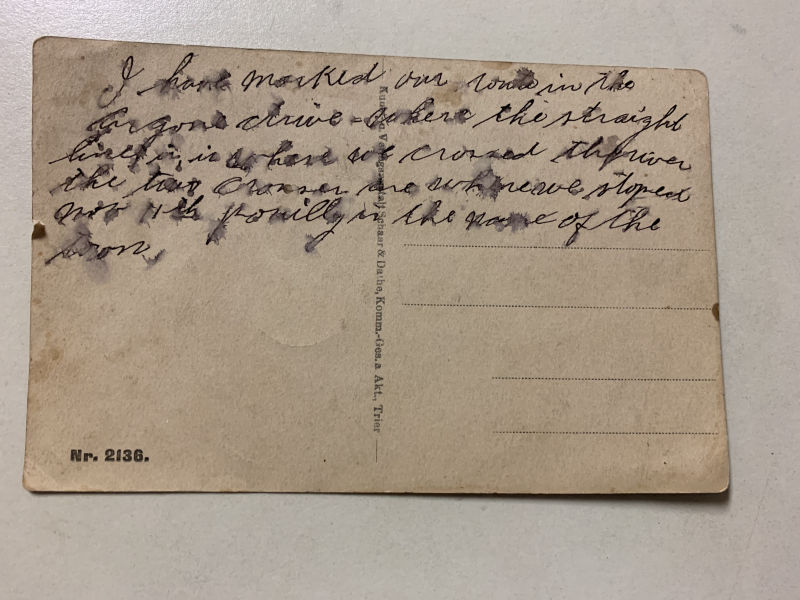 I have marked our route in the
Argone drive - where the straight
line is, is where we crossed the river
the two crosses are where we stoped
nov 11th pouilly is the name of the
town.
Verlagsanstalt Schaar & Dathe, Komm.-Ges. a Akt., Trier
Nr. 2136.